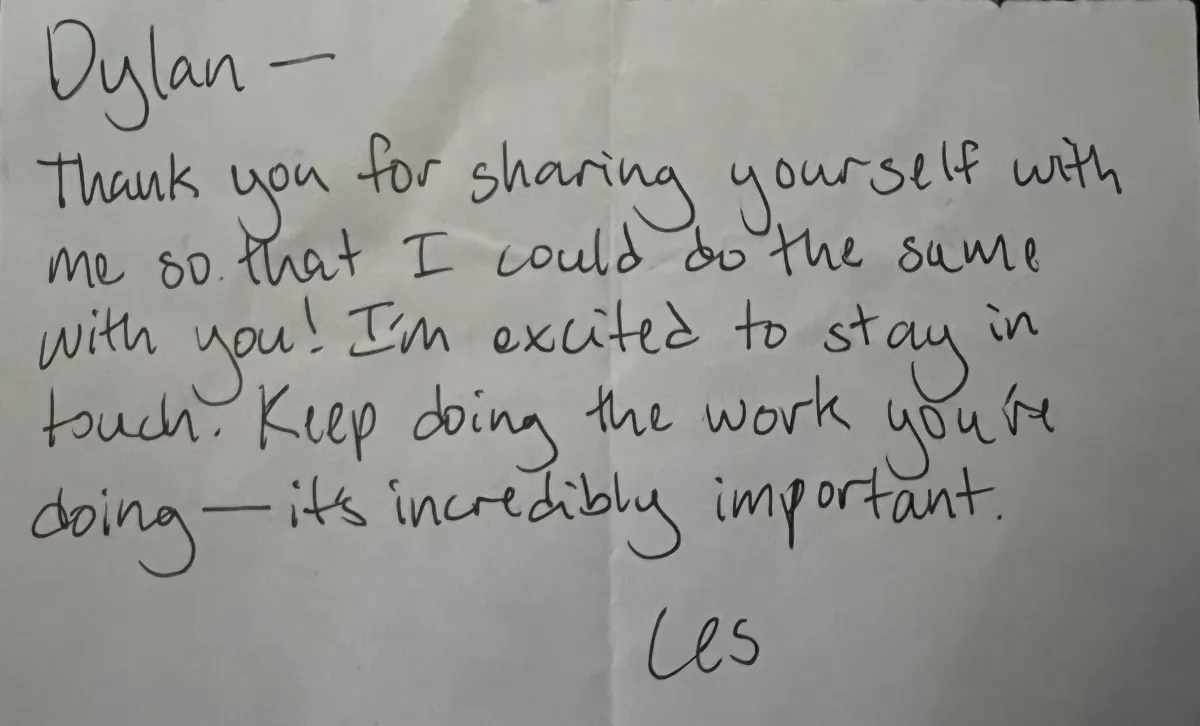 Dylan —
Thank you for sharing yourself with
me so that I could do the same
with you! I'm excited to stay in
touch. Keep doing the work you're
doing — it's incredibly important.
Les